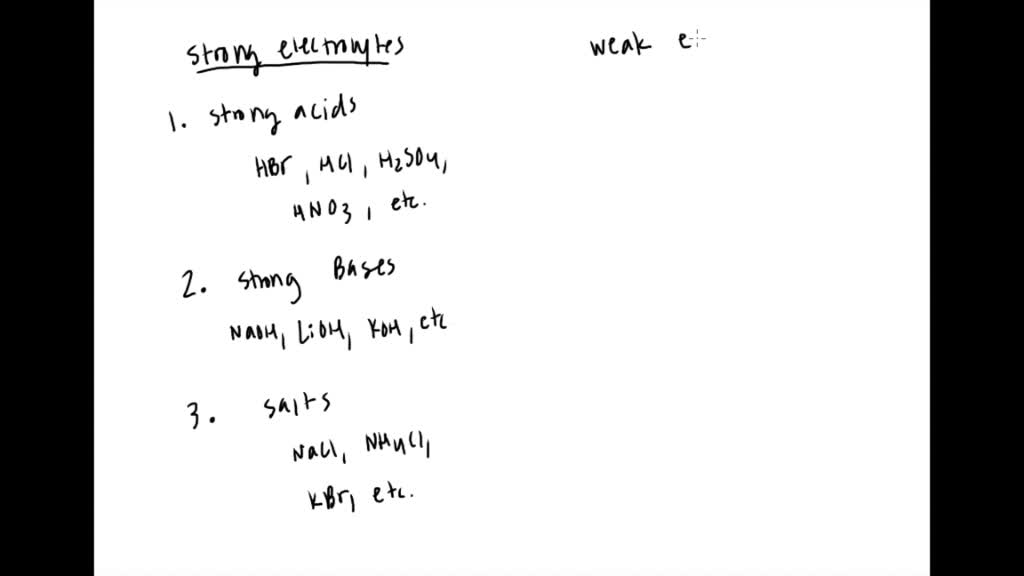 strong electrolytes
weak el
1. strong acids
HBr, HCl, H2SO4,
HNO3, etc.
2. strong Bases
NaOH, LiOH, KOH, etc
3. salts
NaCl, NH4Cl,
KBr, etc.